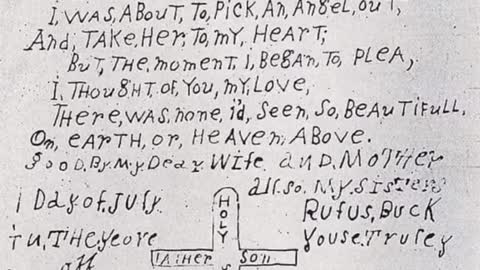 i, WAS, ABOUT, To, PicK, An, Angel, ouT,
And, TAKe, Her, To, mY, HeArT;
BuT, THe, momenT, i, BegAn, To, PLeA,
i, THougHT, oF, You, mY, Love,
THere, wAS, none, id, Seen, So, BeAuTiFuLL,
On, eArTH, or, HeAven, ABove.
gooD, By, My, DeAr, Wife, anD, MoTHer
all.so, My, SisTers
i DAy, of, July
HOLY
RuFus, BucK
i u, THe, Yeore
Youse, Truley
FATHER SON
of
S